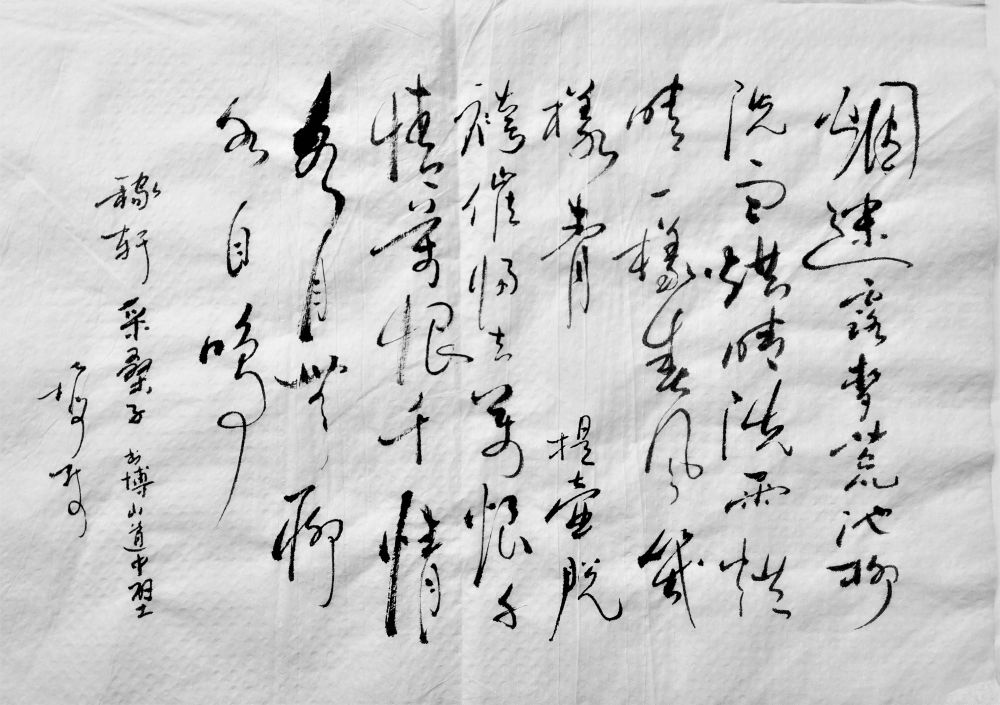 烟迷露麥荒池柳
洗雨烘晴洗雨烘
晴一樣春风幾
樣青 提壶脱
袴催归去萬恨千
情萬恨千情
各自無聊
各自鸣
稼轩 采桑子 书博山道中壁